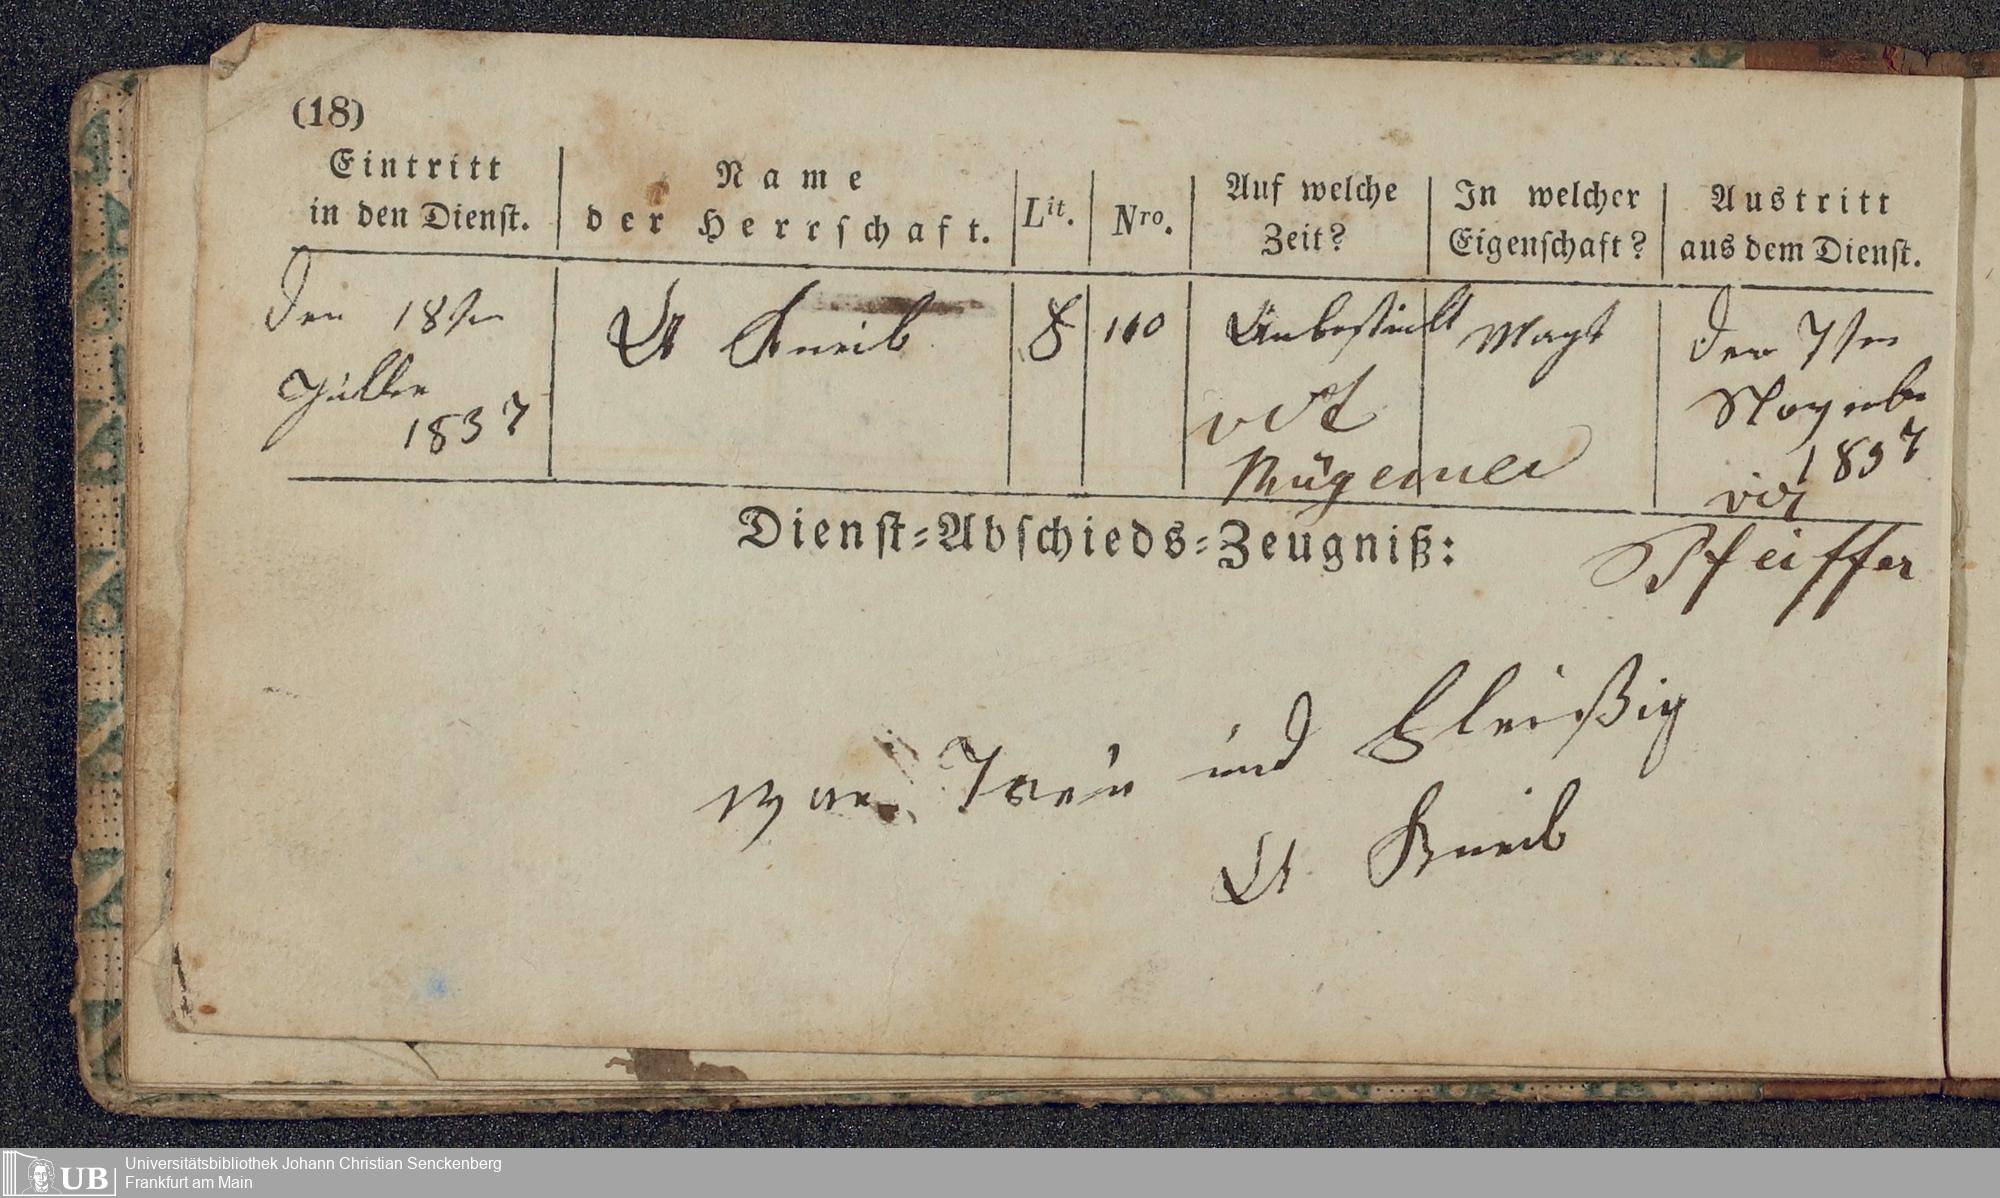 (18)
Eintritt
in den Dienst.
Name
der Herrschaft.
Lit.
Nro.
Auf welche
Zeit?
In welcher
Eigenschaft?
Austritt
aus dem Dienst.
den 18ten
1837
Kneib
110
Unbestimt
Magt
den 7ten
1837
vdt
Dienst-Abschieds-Zeugniß:
Pfeiffer
war Treu und Fleißig
Kneib
UB Universitätsbibliothek Johann Christian Senckenberg
Frankfurt am Main